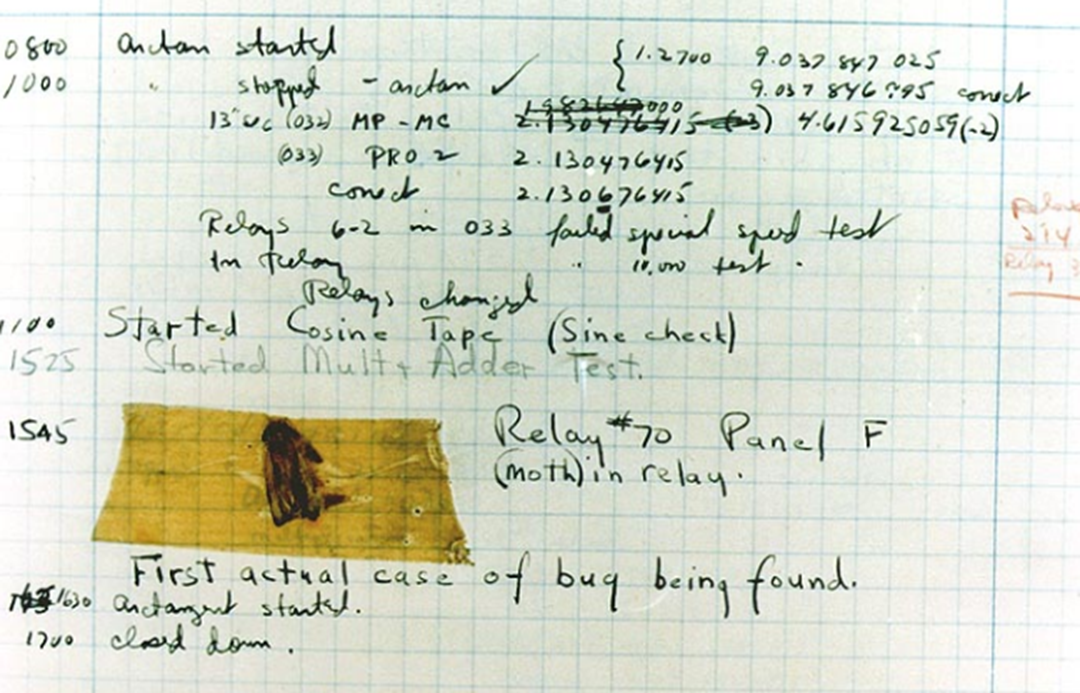 0800 arctan started { 1.2700 9.037 847 025
1000 " stopped - arctan ✓ 9.037 846 995 conect
13" uc (032) MP - MC 2.130476415 (-3) 4.615925059(-2)
(033) PRO 2 2.130476415
conect 2.130676415
Relays 6-2 in 033 failed special speed test
In Relay " 10,000 test .
Relays changed
1100 Started Cosine Tape (Sine check)
1525 Started Mult + Adder Test.
1545 Relay #70 Panel F
(moth) in relay.
First actual case of bug being found.
1630 arctangent started.
1700 closed down .
Relay
Relay